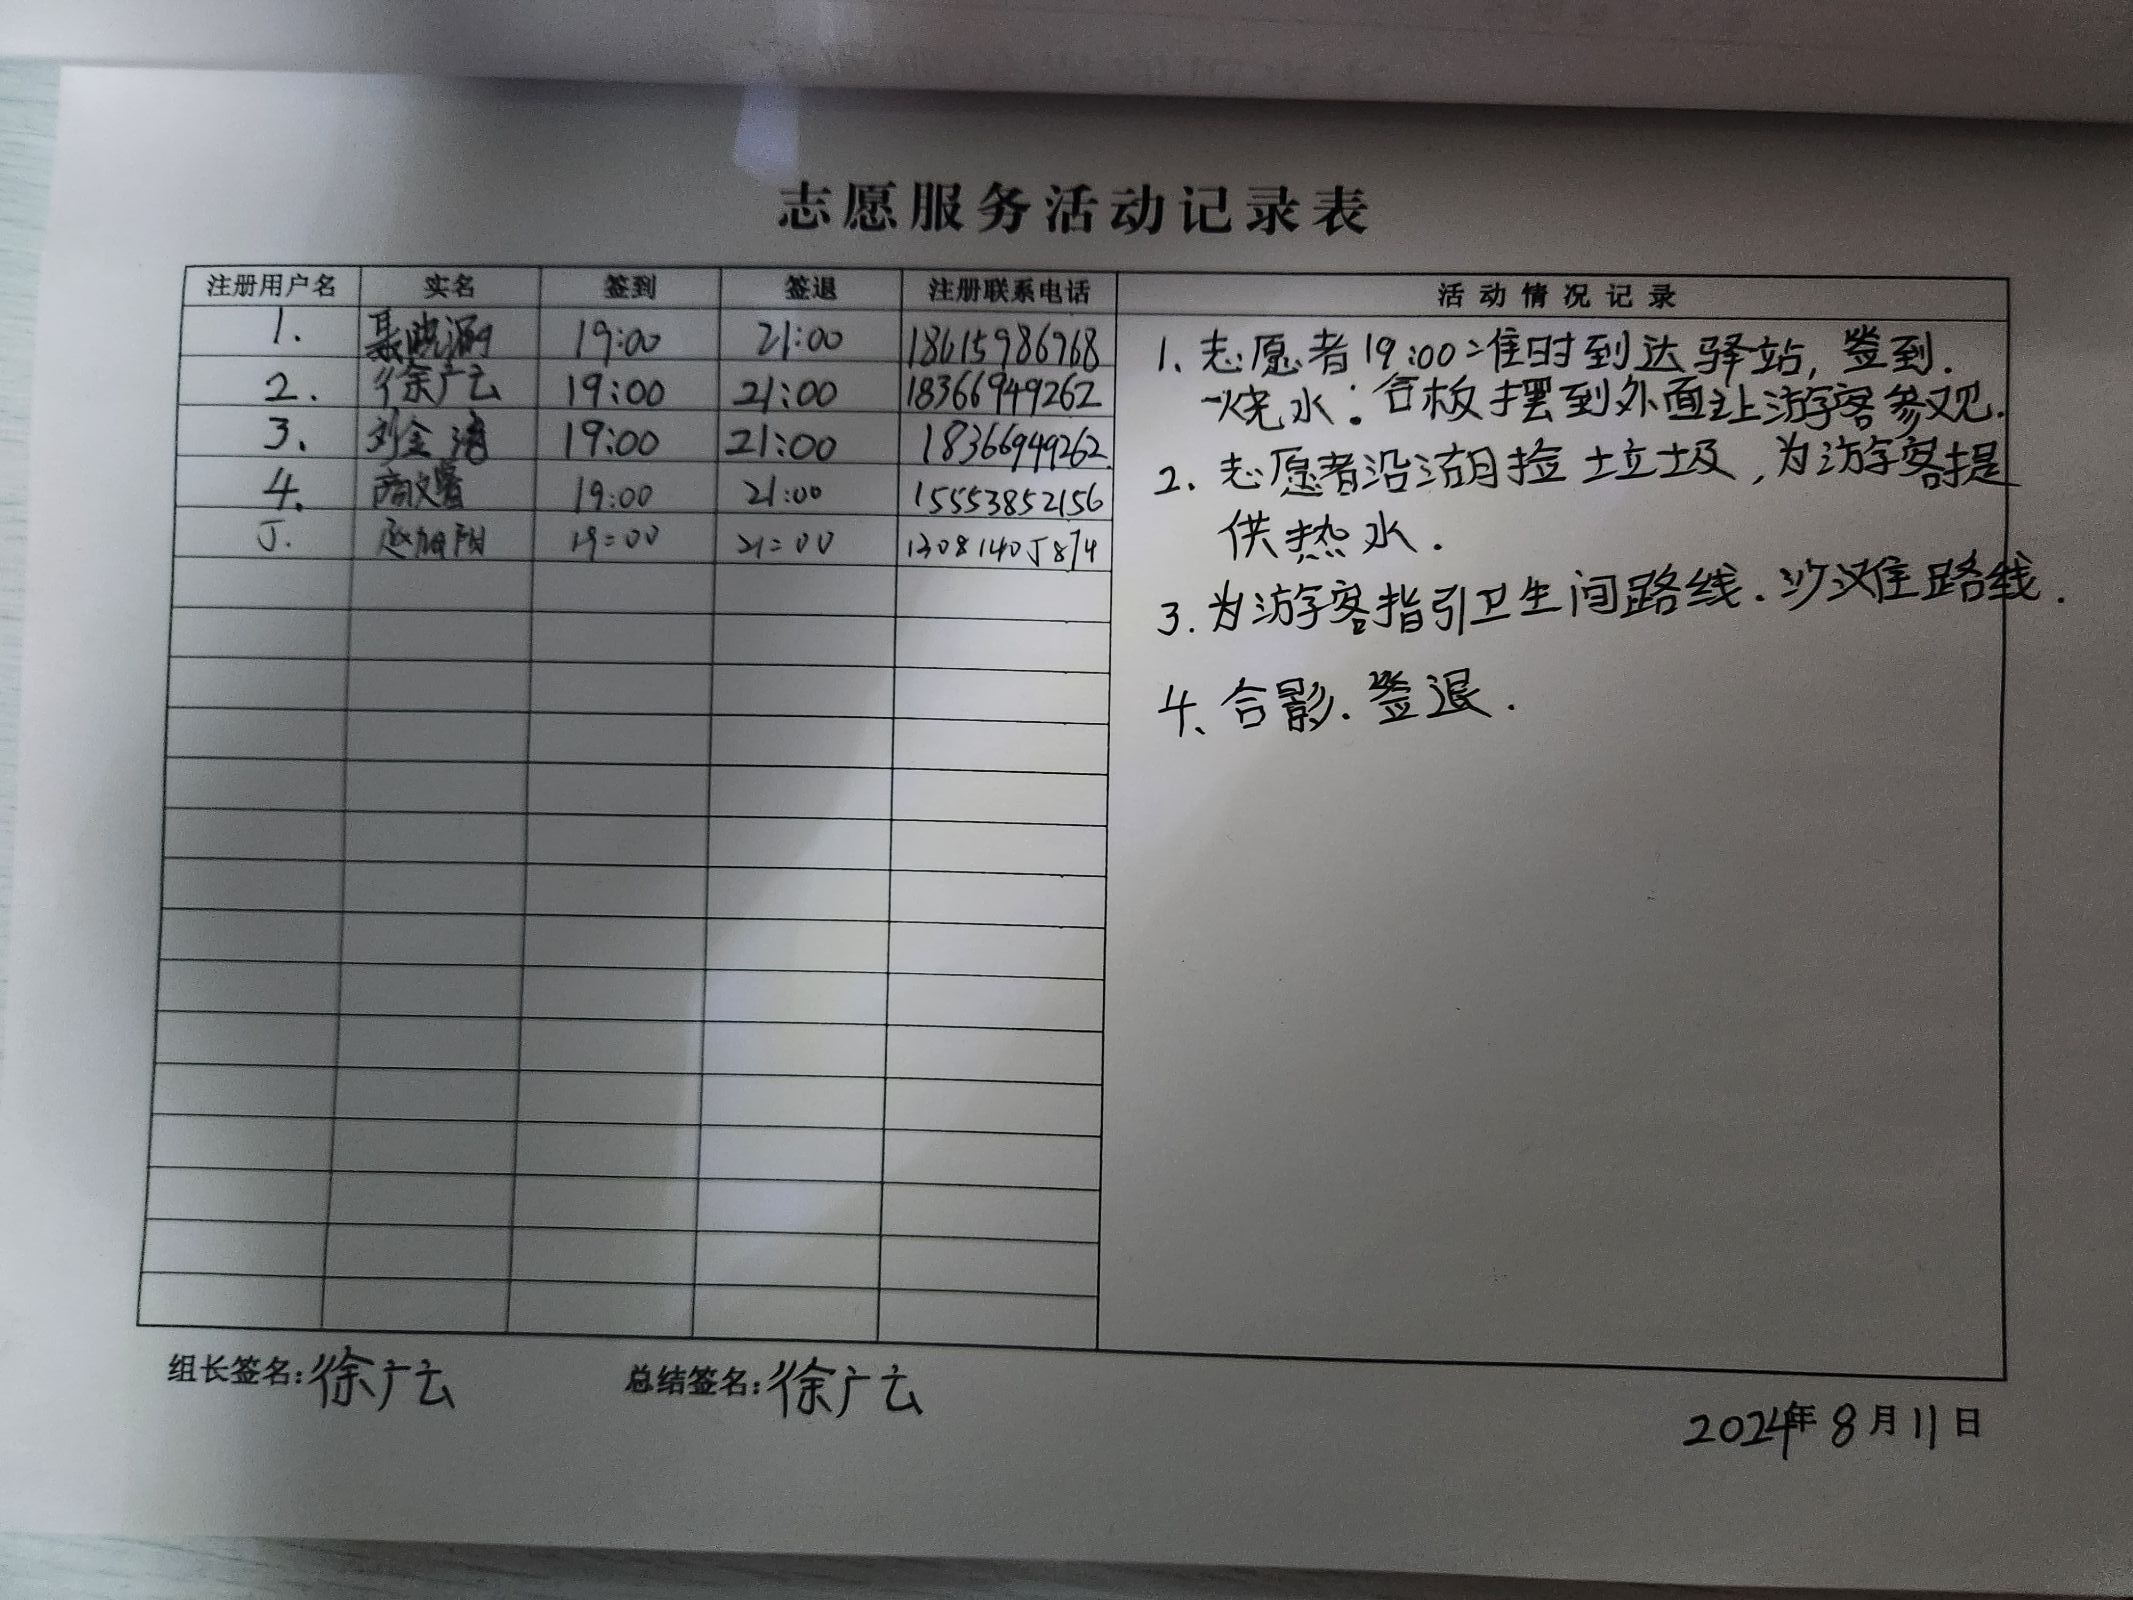 志愿服务活动记录表
注册用户名 实名 签到 签退 注册联系电话 活动情况记录
1. 19:00 21:00 18615986768
2. 徐广云 19:00 21:00 18366949262
3. 刘金涛 19:00 21:00 18366949262
4. 19:00 21:00 15553852156
5. 19:00 21:00 13081405874
1、志愿者19:00准时到达驿站,签到.
烧水:台板摆到外面让游客参观.
2、志愿者沿湖捡垃圾,为游客提
供热水.
3.为游客指引卫生间路线.沙滩路线.
4、合影.签退.
组长签名:徐广云 总结签名:徐广云
2024年8月11日